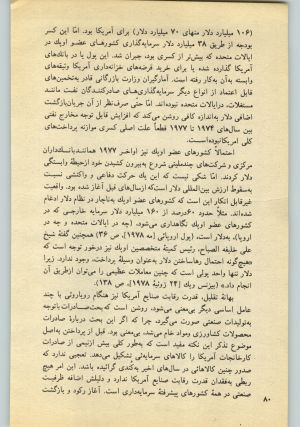 (۱۰۶ میلیارد دلار منهای ۷۰ میلیارد دلار) برای آمریکا بود. امّا این کسر
بودجه از طریق ۳۸ میلیارد دلار سرمایه‌گذاری کشورهای عضو اوپک در
ایالات متحده که بیش‌تر از کسری بود، جبران شد. این پول یا در بانک‌های
آمریکا گذارده شده یا برای خرید قرضه‌های خزانه‌داری آمریکا وثیقه‌های
وابسته به‌آن به‌کار رفته است. آمارگیران وزارت بازرگانی قادر به‌تخمین‌های
قابل اعتماد از انواع دیگر سرمایه‌گذاری‌های صادرکنندگان نفت مانند
مستغلات، درایالات متحده نبوده‌اند. امّا حتی صرف‌نظر از آن جریان‌بازگشت
اضافی دلار به‌اندازه کافی روشن می‌کند که افزایش قابل توجه مخارج نفتی
بین سال‌های ۱۹۷۴ تا ۱۹۷۷ قطعاً علت اصلی کسری موازنه پرداخت‌های
کلی آمریکانبوده‌است.
احتمالاً کشورهای عضو اوپک نیز اواخر ۱۹۷۷ همانندبانکداران
مرکزی و شرکت‌های چندملیتی شروع به‌بیرون کشیدن خود ازحیطهٔ وابستگی
دلار کردند. امّا شکی نیست که این یک حرکت دفاعی و واکنشی نسبت
به‌سقوط ارزش بین‌المللی دلار است‌که ازسال‌های قبل آغاز شده بود. واقعیت
غیرقابل انکار این است که کشورهای عضو اوپک به‌ناچار در نظام دلار ادغام
شده‌اند. مثلاً حدود ۶۰درصد از ۱۶۰ میلیارد دلار سرمایه خارجی که در
کشورهای عضو اوپک نگاهداری می‌شود، (چه در ایالات متحده و چه در
اروپا)، به‌دلار است، (پول اروپائی (مه ۱۹۷۸)، ص ۳۶) همچنین گفتهٔ شیخ
علی خلیفه الصباح، رئیس کمیتهٔ متخصصین اوپک نیز درخور توجه است که
«هیچ‌گونه احتمال رهاساختن دلار به‌عنوان وسیلهٔ پرداخت، وجود ندارد، زیرا
دلار تنها واحد پولی است که چنین معاملات عظیمی را می‌توان ازطریق آن
انجام داد» (بیزنس ویک [۲۴ ژوئیهٔ ۱۹۷۸]، ص ۱۳۸).
بهانهٔ تقلیل، قدرت رقابت صنایع آمریکا نیز هنگام رویاروئی با چند
عامل اساسی دیگر بی‌معنی می‌شود، روشن است که بحث‌صادرات باتوجه
به‌تولیدات صنعتی صورت می‌گیرد، چرا که اگر این بحث دربارهٔ صادرات
محصولات کشاورزی ومواد خام می‌شد، بی‌معنی بود. قبل از پرداختن به‌اصل
موضوع تذکر این نکته مفید است که به‌طور کلی بیش ازنیمی از صادرات
کارخانجات آمریکا را کالاهای سرمایه‌ئی تشکیل می‌دهد. تعجبی ندارد که
صدور چنین کالاهائی در سال‌های اخیر به‌کندی گرائیده باشد. این امر هیچ
ربطی به‌فقدان قدرت رقابت صنایع آمریکا ندارد و دلیلش اضافه ظرفیت
صنعتی در همهٔ کشورهای پیشرفتهٔ سرمایه‌داری است. آغاز رکود و بازگشت
۸۰